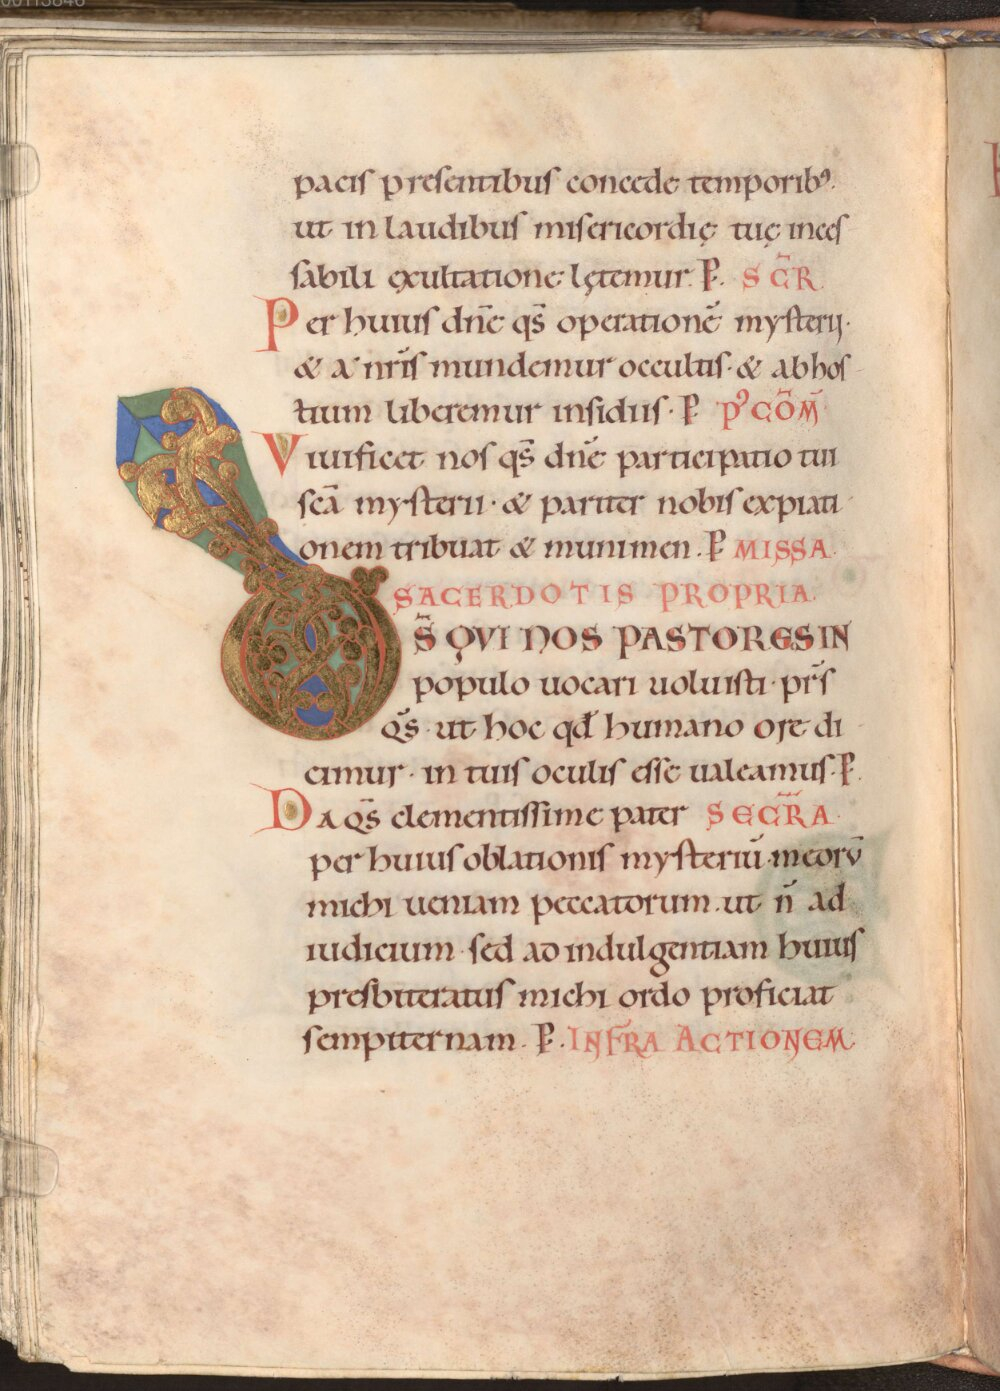 pacis presentibus concede temporibꝰ.
ut in laudibus misericordię tuę inces
sabili exultatione lętemur. P̄. SC̄R
Per huius dn̄e qs̄ operationē mysterij.
& a nr̄is mundemur occultis. & ab hos
tium liberemur insidiis. P̄ PꝰCŌM̄
Viuificet nos qs̄ dn̄e participatio tui
scā mysterii. & pariter nobis expiati
onem tribuat & munimen. P̄ MISSA
SACERDOTIS PROPRIA.
D̄S QVI NOS PASTORES IN
populo uocari uoluisti. pr̄s
qs̄. ut hoc qd̄ humano ore di
cimur. in tuis oculis esse ualeamus. P̄.
Da qs̄ clementissime pater SECR̄A
per huius oblationis mysteriū. meorū
michi ueniam peccatorum. ut n̄ ad
iudicium. sed ad indulgentiam huius
presbiteratus michi ordo proficiat
sempiternam. P̄. INFRA ACTIONEM.